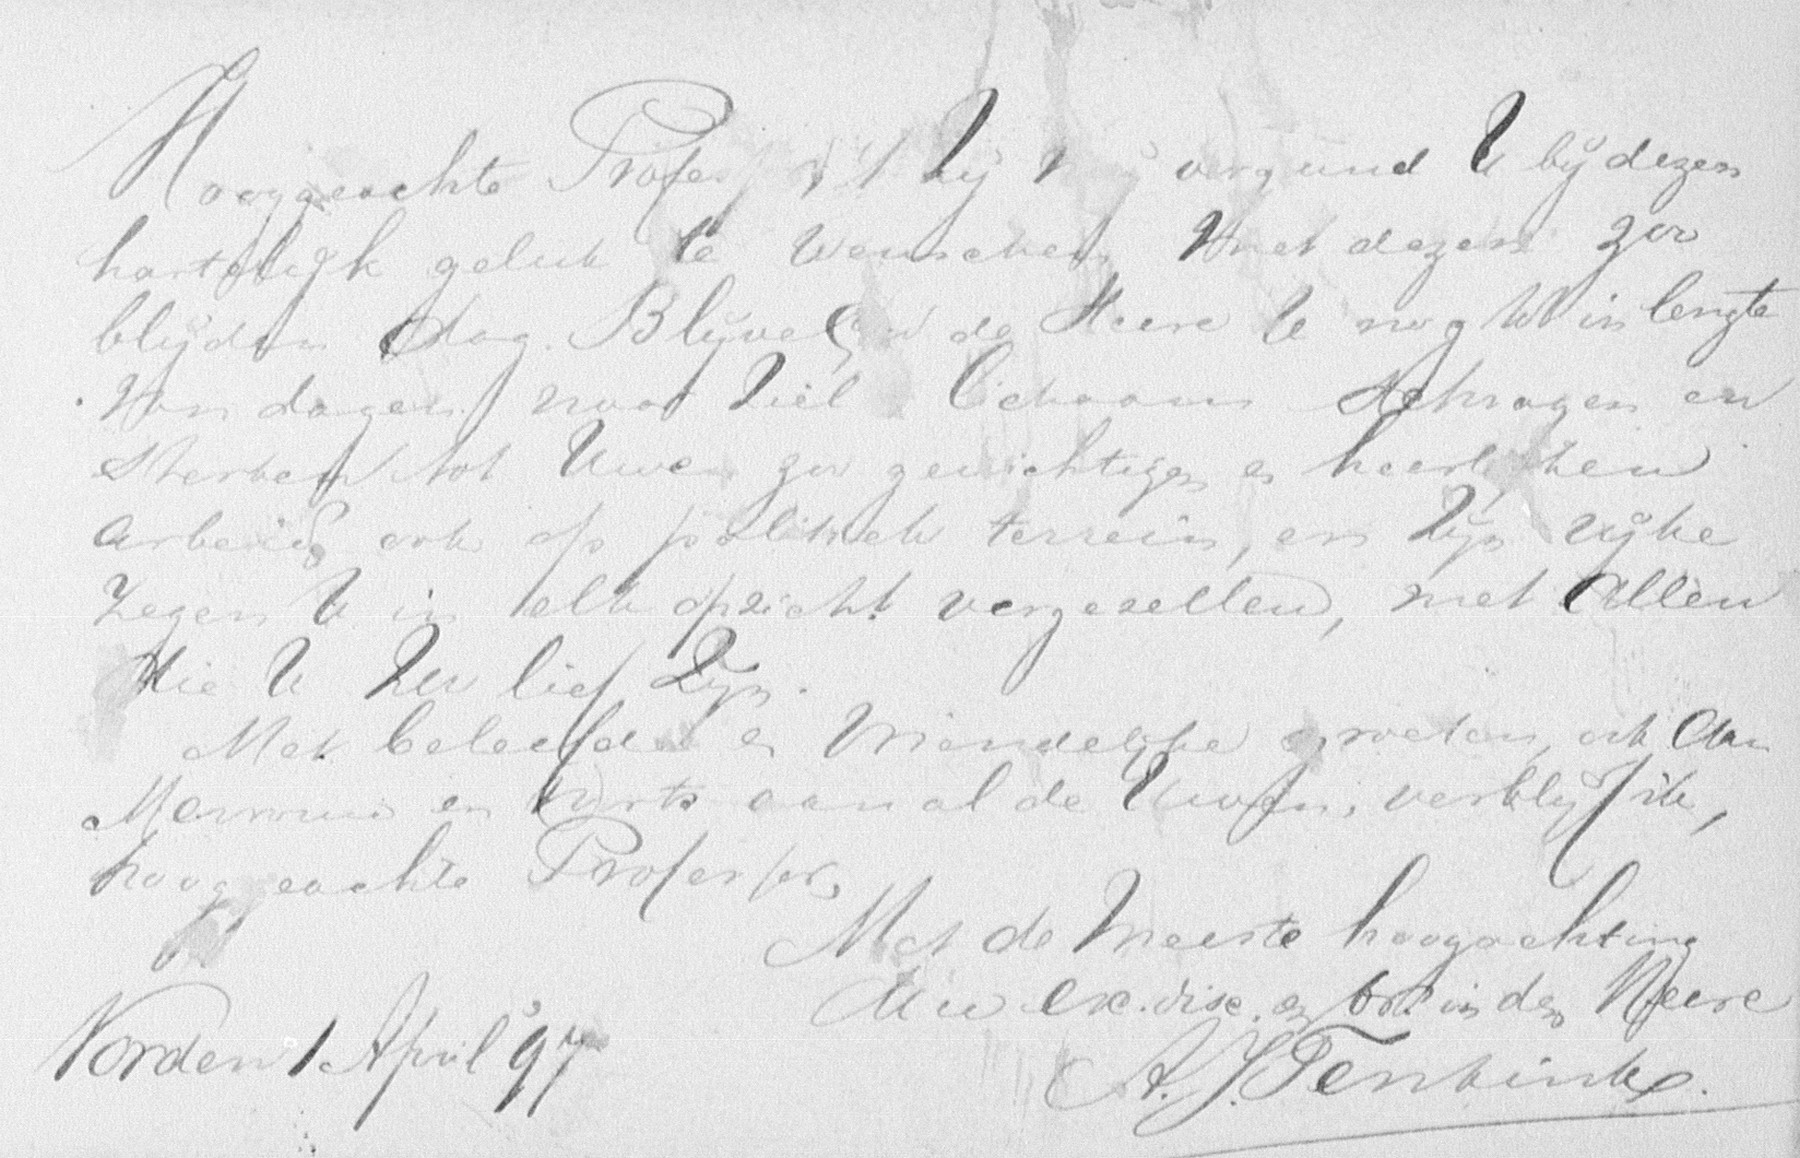 Hooggeachte Professor! Zij mij vergund U bij dezen
hartelijk geluk te wenschen met dezen zoo
blijden dag. Blijve de Heere U nog tot in lengte
van dagen naar Ziel Lichaam schragen en
sterken tot Uwen zoo gewichtigen en heerlijken
arbeid ook op politiek terrein, en Zijn rijke
Zegen U in elk opzicht vergezellen, met Allen
die U zoo lief zijn.
Met beleefde en Vriendelijke groeten, ook aan
Mevrouw en voorts aan al de Uwen, verblijf ik,
hooggeachte Professor,
Met de Meeste hoogachting
Uw disc. en br. in den Heere
A. J. Tenkink.
Vorden 1 April '97